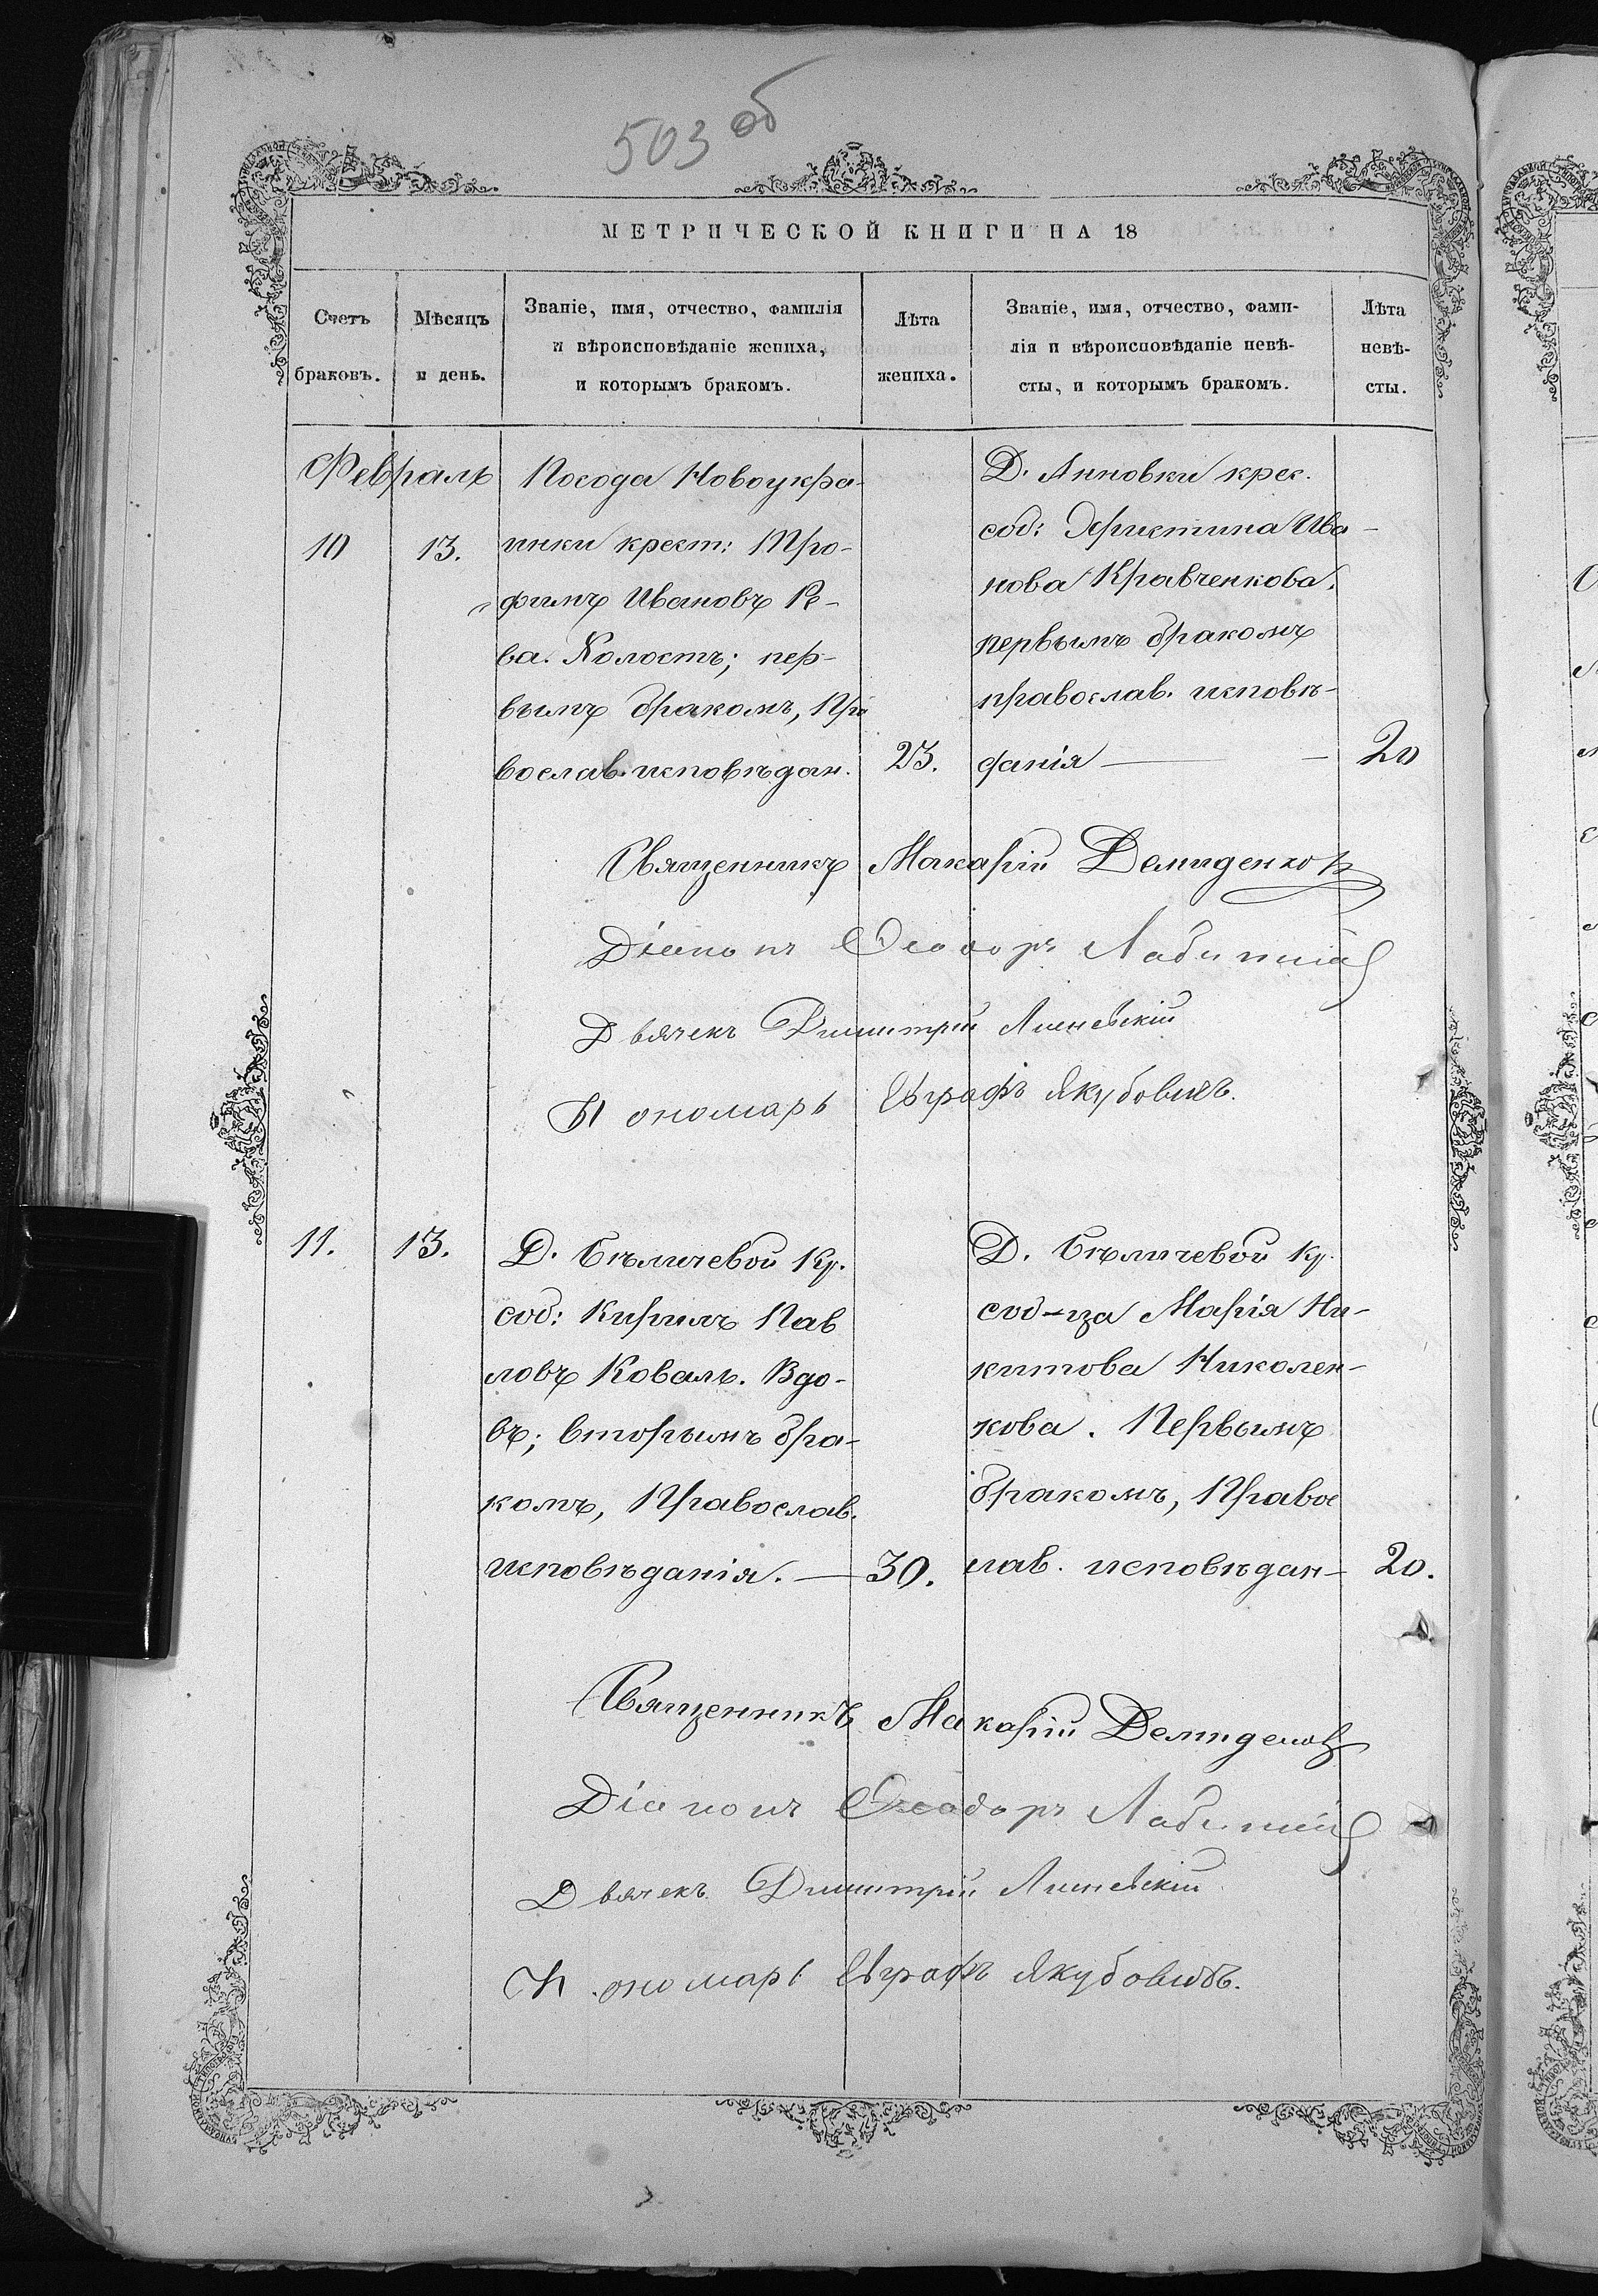 503 об
МЕТРИЧЕСКОЙ КНИГИ НА 18
Счетъ браковъ.
Мѣсяцъ и день.
Званіе, имя, отчество, фамилія
и вѣроисповѣданіе жениха,
и которымъ бракомъ.
Лѣта жениха.
Званіе, имя, отчество, фами-
лія и вѣроисповѣданіе невѣ-
сты, и которымъ бракомъ.
Лѣта невѣ-
сты.
Февраль
10
13.
Посода Новоукра-
инки крест: Тро-
фимъ Ивановъ Ре-
ва. Холостъ; пер-
вымъ бракомъ, Пра
вослав. исповѣдан.
23.
Д. Анновки крес.
соб: Христина Ива-
нова Кравченкова.
первымъ бракомъ
православ. исповѣ-
данія —
20
Священникъ Макарій Демиденков
Діаконъ Ѳеодоръ
Дьячекъ Димитрій
Пономарь Евграфъ Якубовичъ.
11.
13.
Д. Бѣличевой Кр.
соб: Кирилъ Пав
ловъ Коваль. Вдо-
въ; вторымъ бра-
комъ, Православ.
исповѣданія. —
30.
Д. Бѣличевой Кр.
соб-ца Марія Ни-
китова Николен-
кова. Первымъ
бракомъ, Правос
лав. исповѣдан-
20.
Священникъ Макарій
Діаконъ Ѳеодоръ
Дьячекъ Димитрій
Пономарь Евграфъ Якубовичъ.